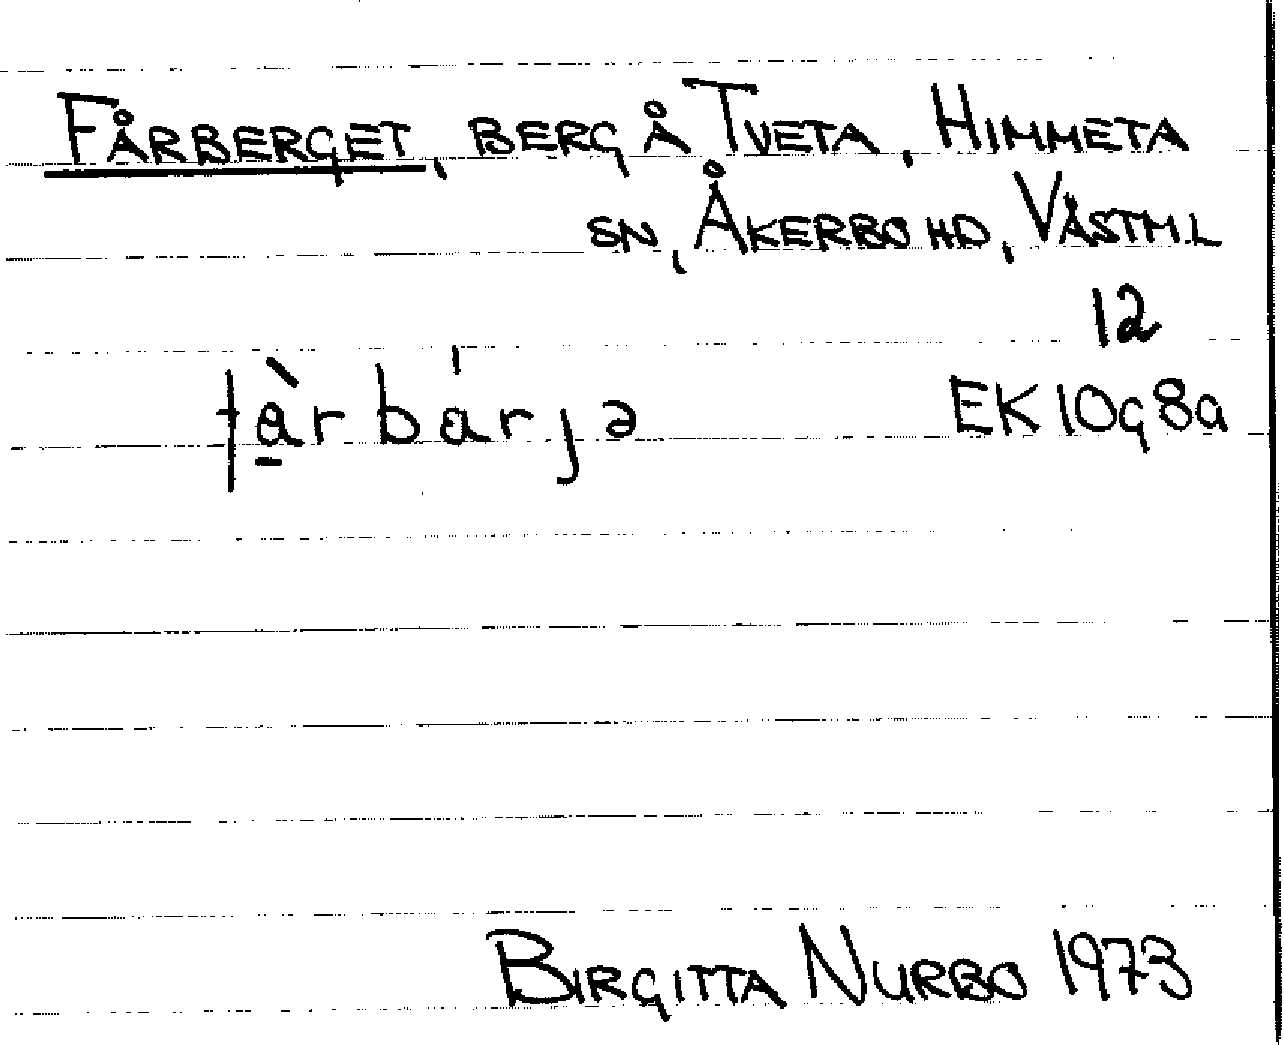 FÅRBERGET, BERG Å TVETA, HIMMETA
SN, ÅKERBO HD, VÄSTM.L
12
få̱̀r bá̀rȷə EK 10G8a
BIRGITTA NURBO 1973